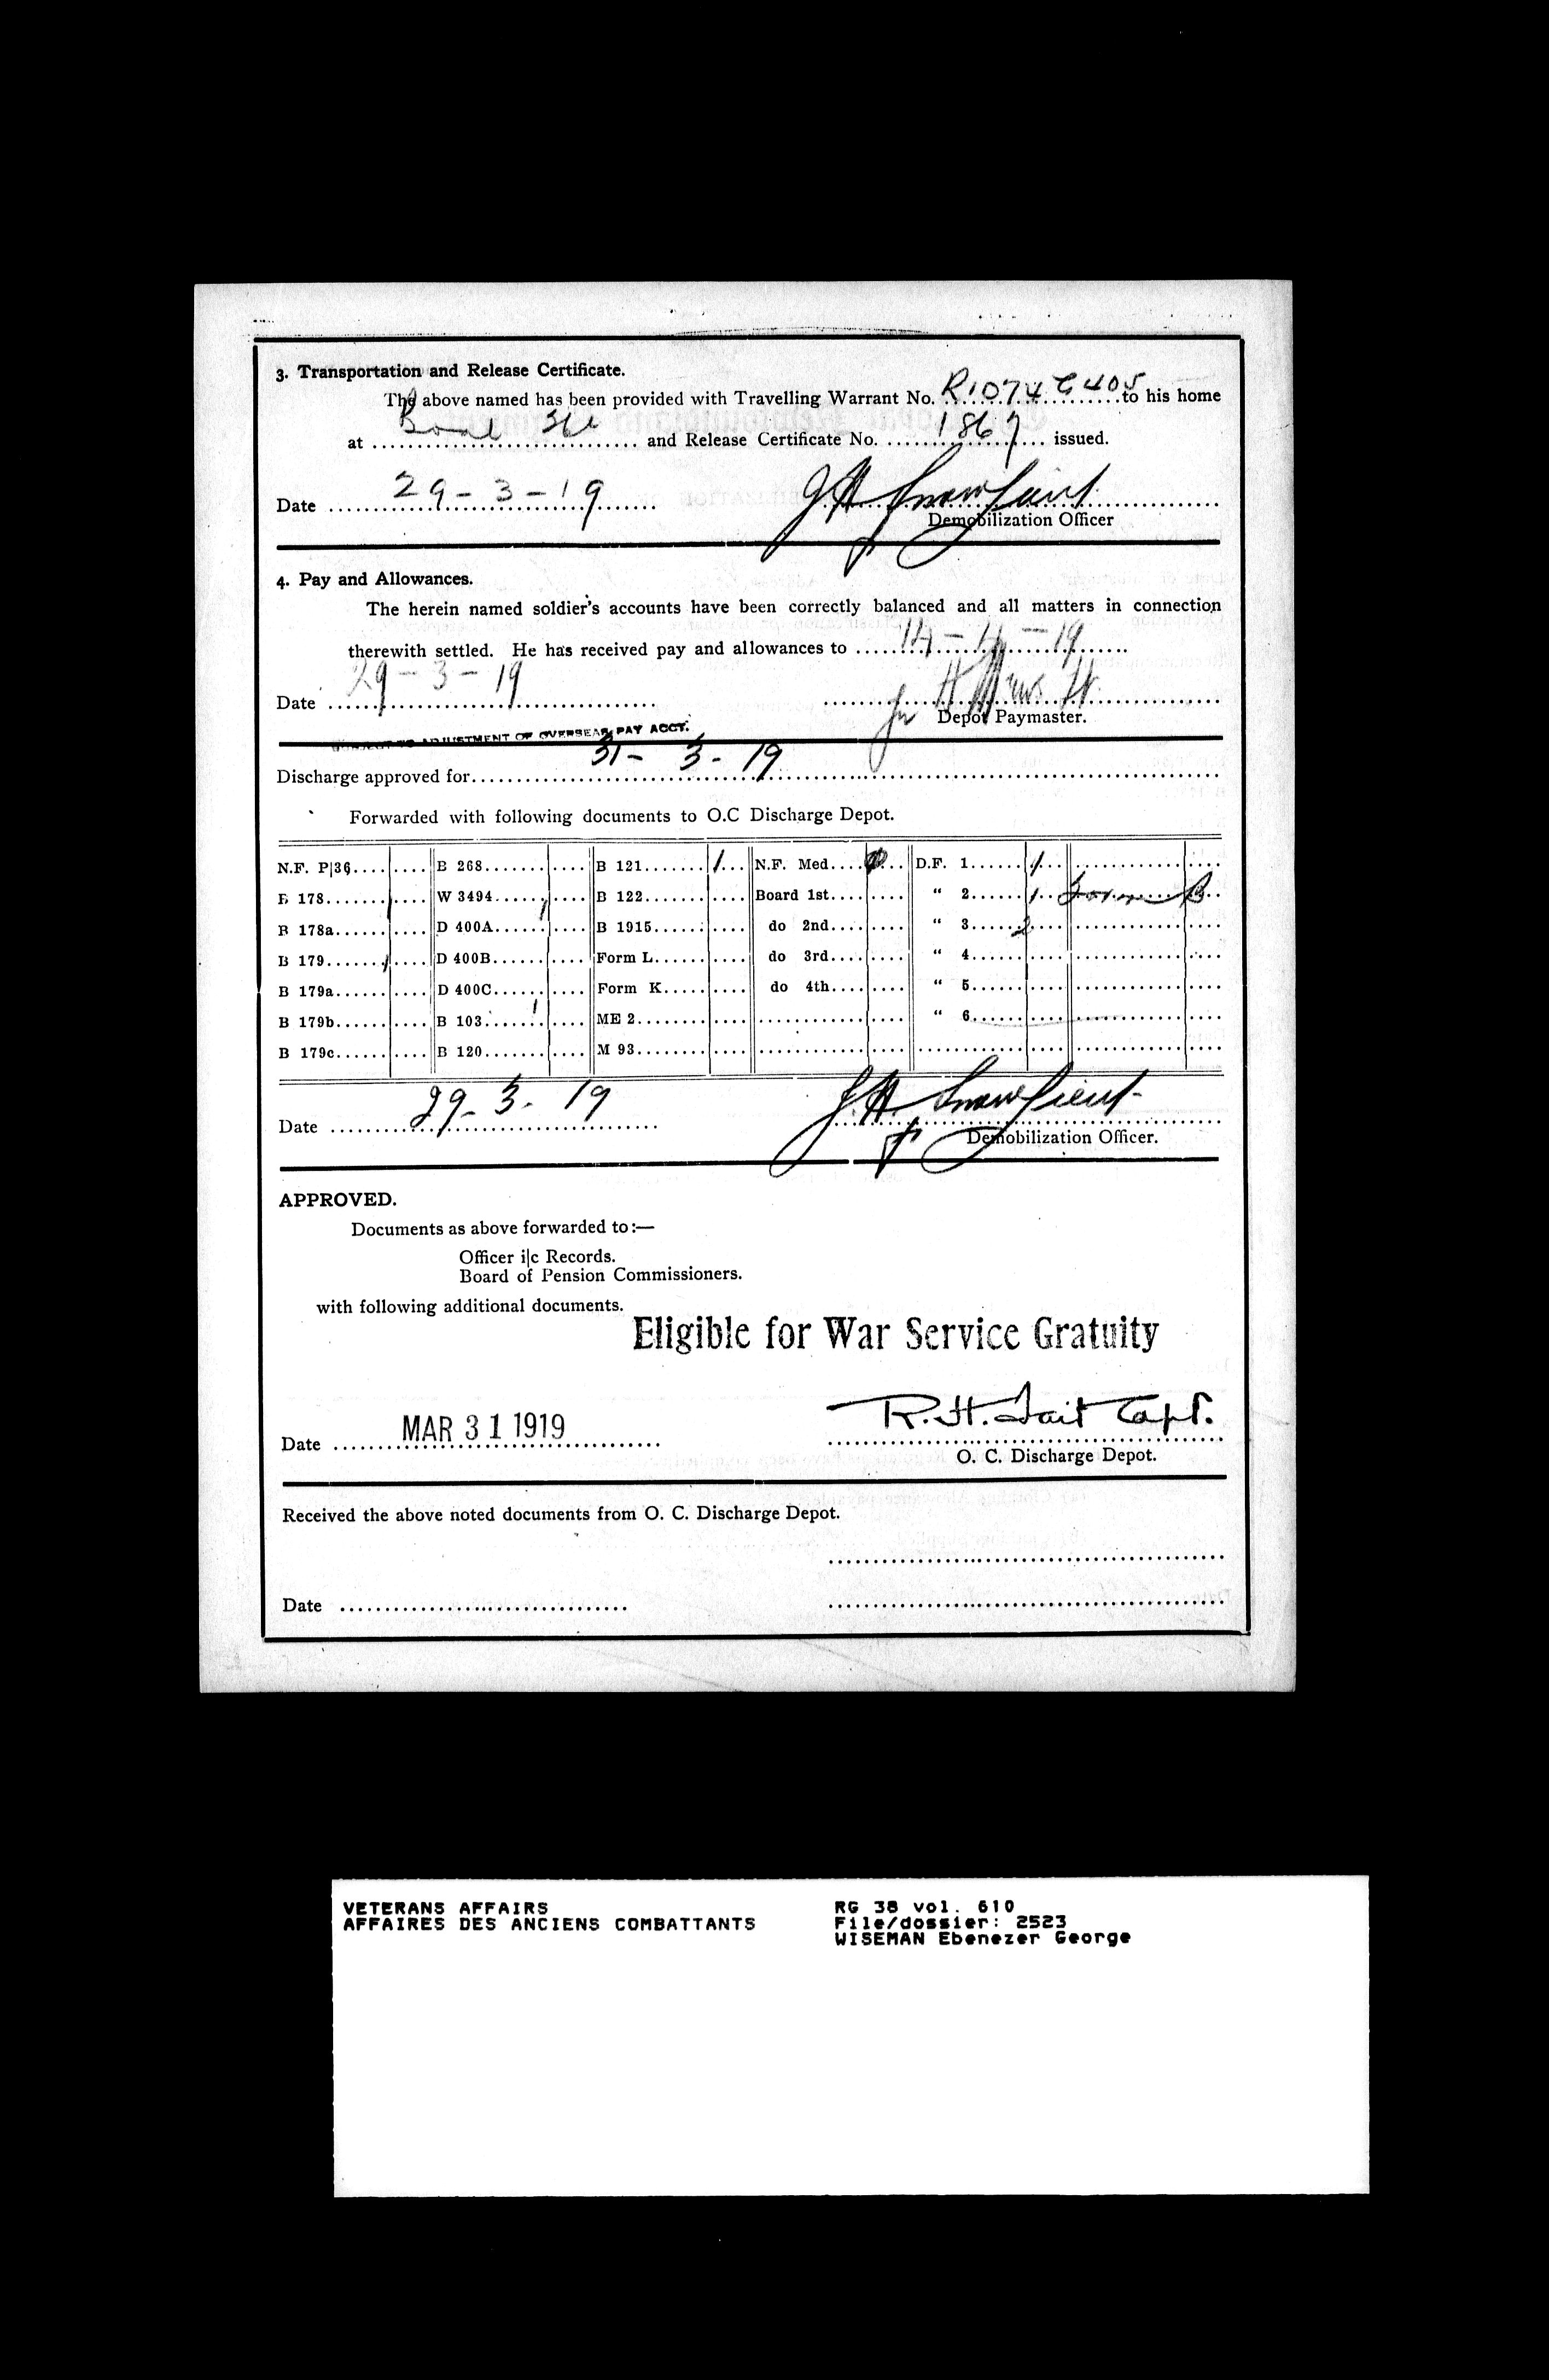 3. Transportation and Release Certificate.
The above named has been provided with Travelling Warrant No. R1074 G405 to his home
at ........ and Release Certificate No. 1867 issued.
Date 29-3-19 J.H. Snow Lieut.
Demobilization Officer
4. Pay and Allowances.
The herein named soldier's accounts have been correctly balanced and all matters in connection
therewith settled. He has received pay and allowances to 14-4-19
Date 29-3-19
Depot Paymaster.
SUBJECT TO ADJUSTMENT OF OVERSEAS PAY ACCT.
Discharge approved for 31-3-19
Forwarded with following documents to O.C Discharge Depot.
N.F. P|36 B 268 B 121 1 N.F. Med D.F. 1 1
B 178 / W 3494 / B 122 Board 1st " 2 1 Form B
B 178a D 400A B 1915 do 2nd " 3 2
B 179 / D 400B Form L do 3rd " 4
B 179a D 400C Form K do 4th " 5
B 179b B 103 1 ME 2 " 6
B 179c B 120 M 93
Date 29-3-19 J.H. Snow Lieut.
Demobilization Officer.
APPROVED.
Documents as above forwarded to:—
Officer i|c Records.
Board of Pension Commissioners.
with following additional documents.
Eligible for War Service Gratuity
Date MAR 31 1919 R.H. Tait Capt.
O. C. Discharge Depot.
Received the above noted documents from O. C. Discharge Depot.
Date
VETERANS AFFAIRS RG 38 vol. 610
AFFAIRES DES ANCIENS COMBATTANTS File/dossier: 2523
WISEMAN Ebenezer George